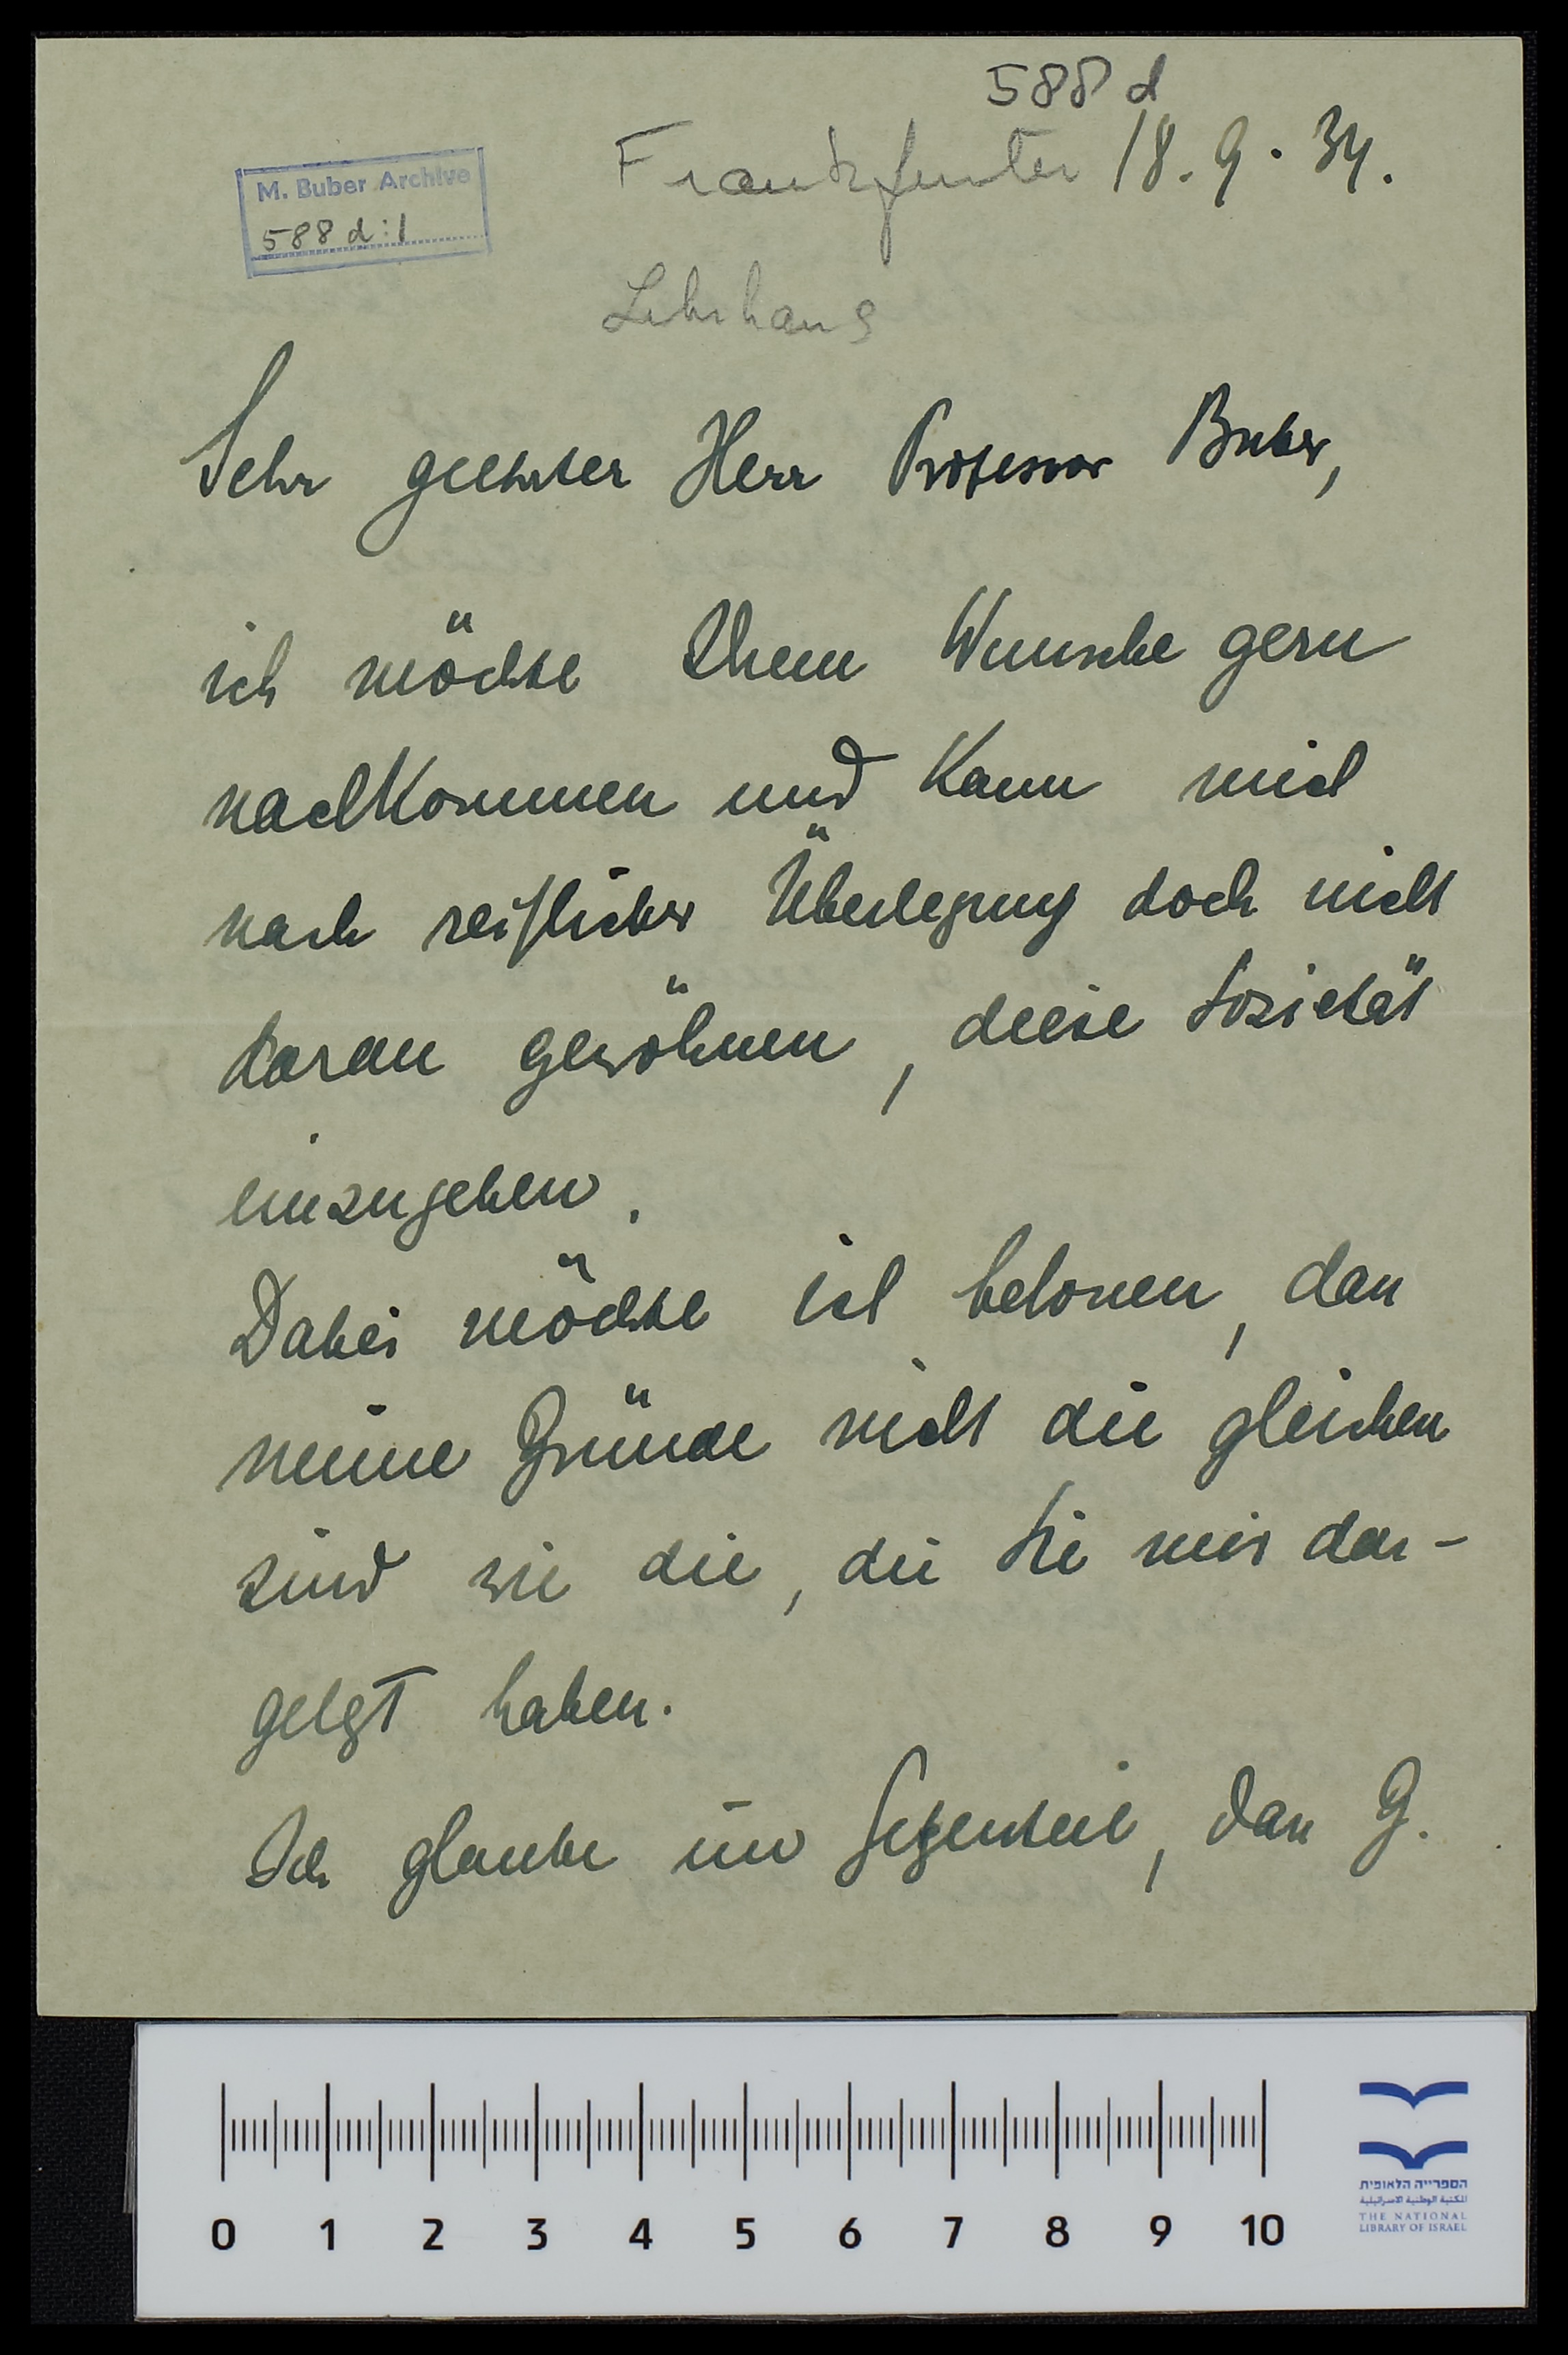 588 d
Frankfurter 18. 9. 34.
M. Buber Archive
588 d:1
Lehrhaus
Sehr geehrter Herr Professor Buber,
ich möchte Ihrem Wunsche gern
nachkommen und kann mich
nach reiflicher Überlegung doch nicht
daran gewöhnen, diese Sozietät
einzugehen.
Dabei möchte ich betonen, dass
meine Gründe nicht die gleichen
sind wie die, die Sie mir dar-
gelegt haben.
Ich glaube im Gegenteil, dass G.
0 1 2 3 4 5 6 7 8 9 10
הספרייה הלאומית
المكتبة الوطنية الاسرائيلية
THE NATIONAL
LIBRARY OF ISRAEL